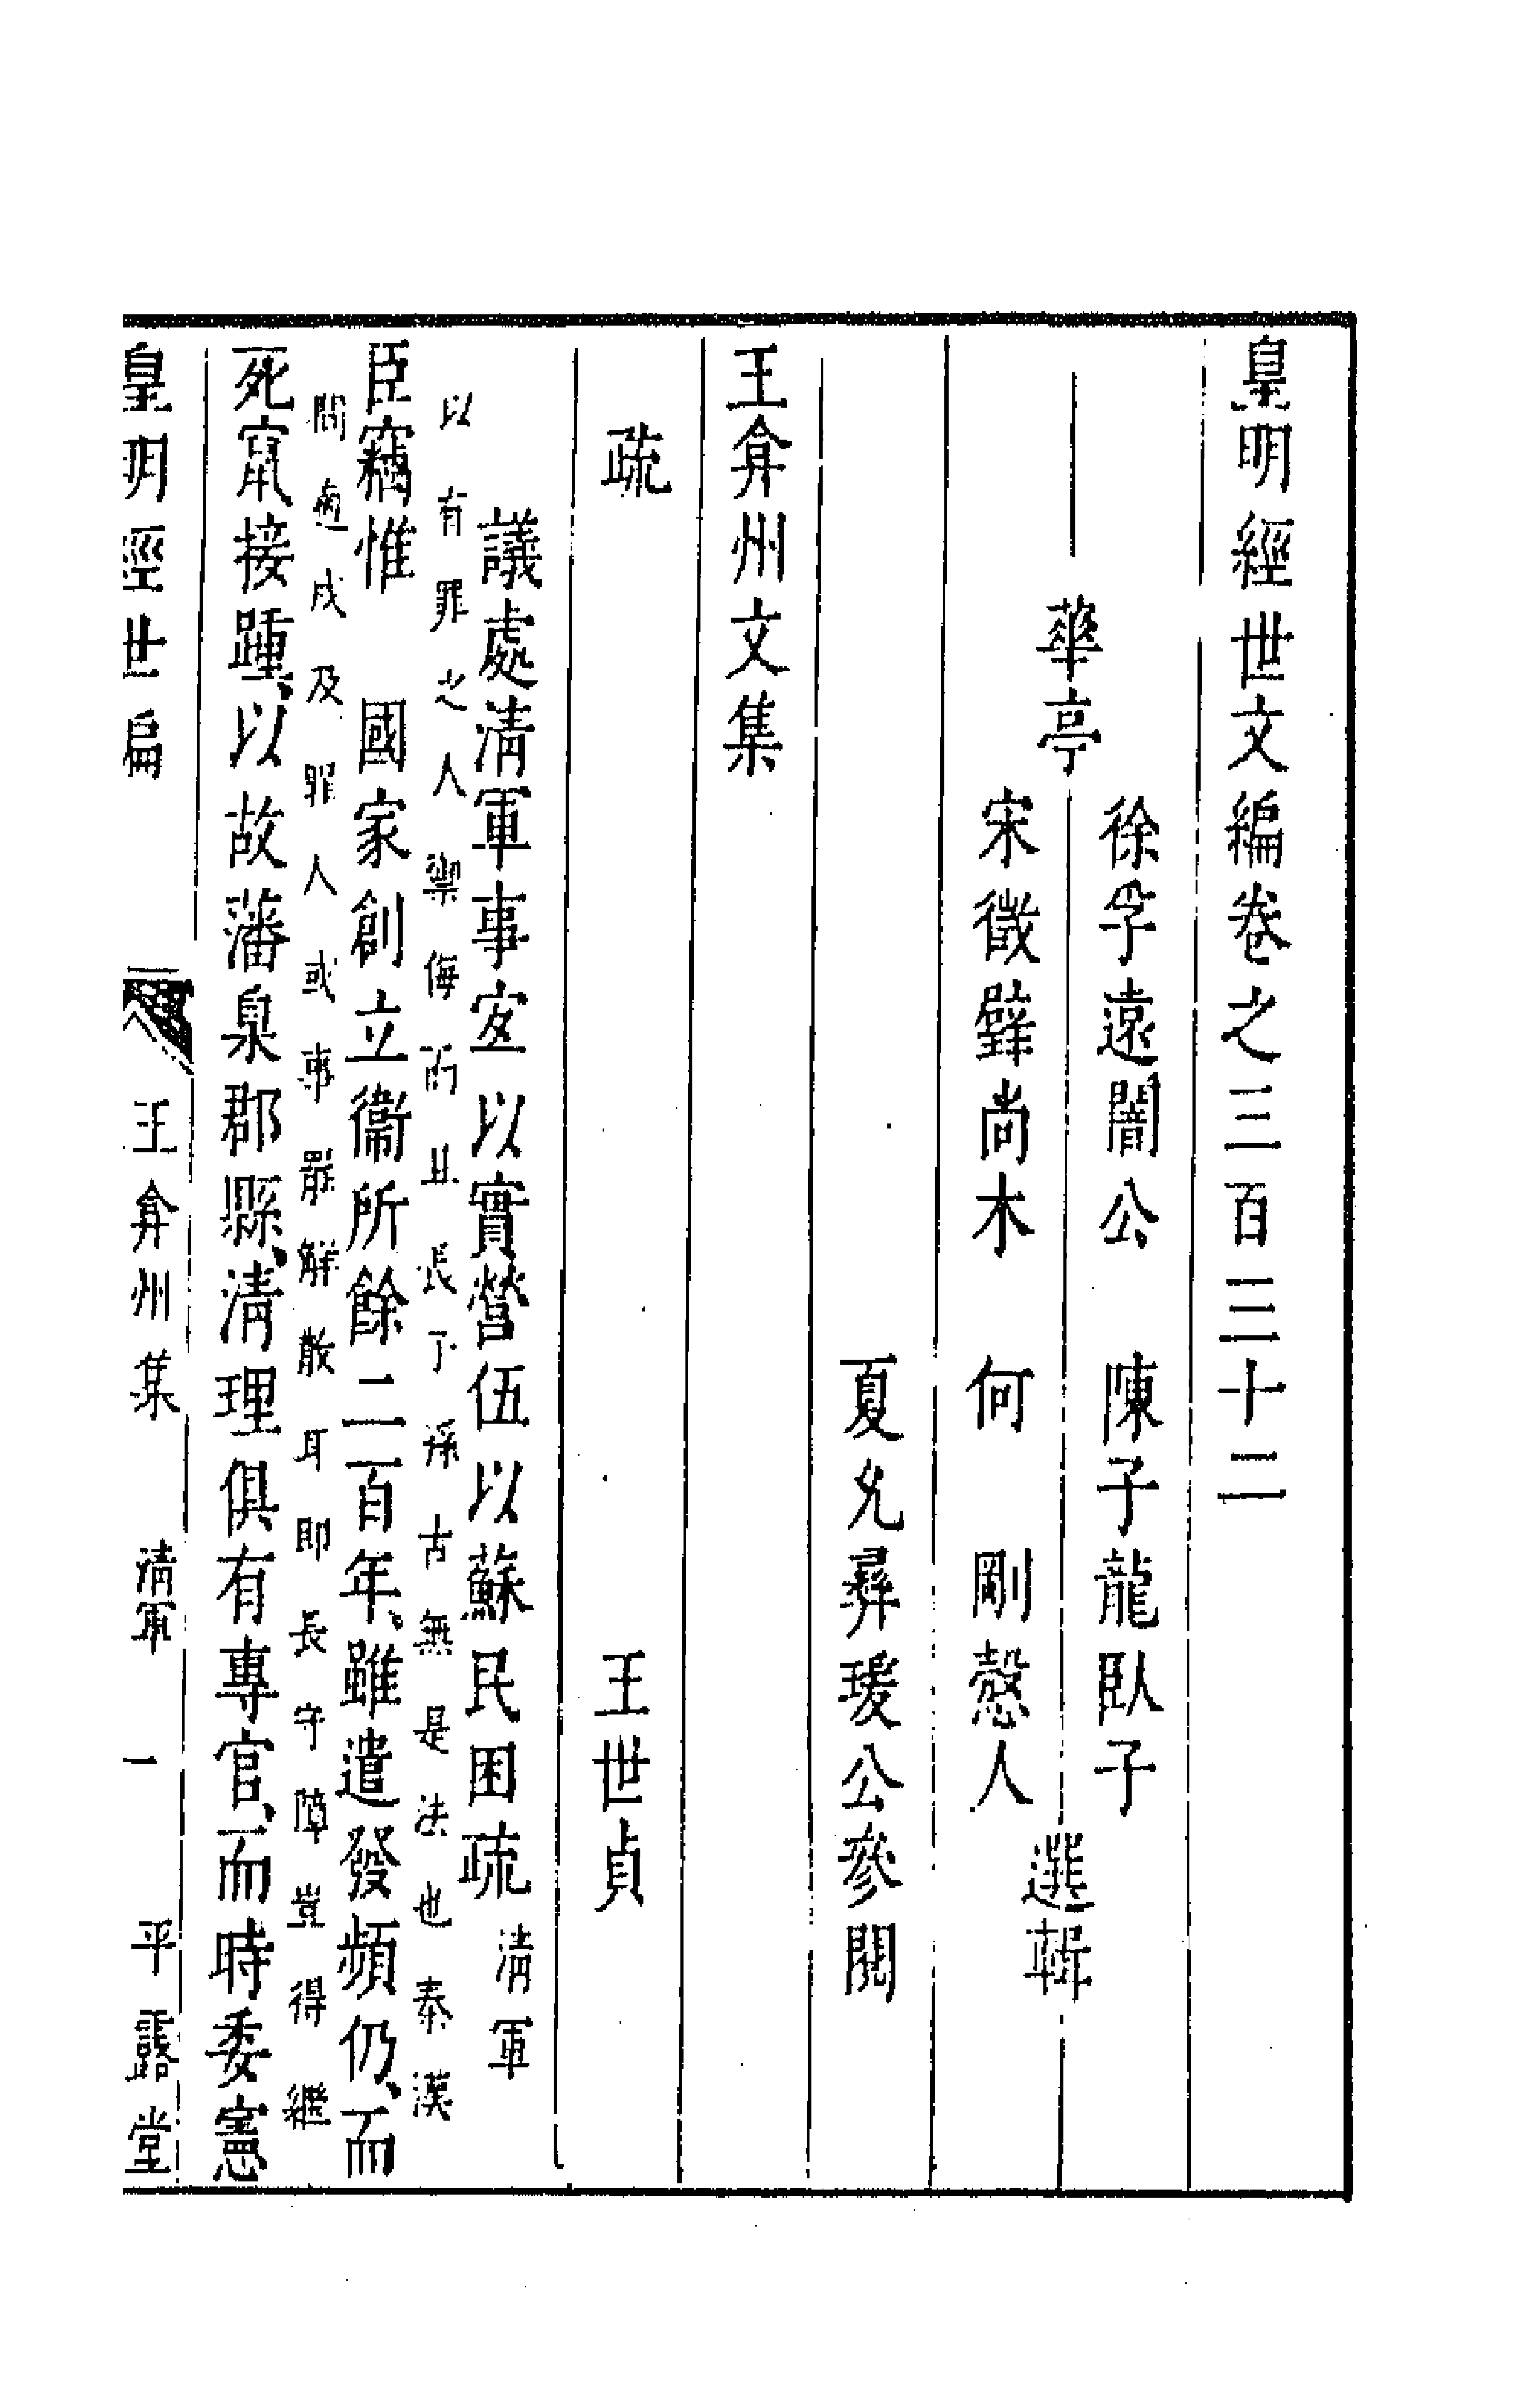 皇明經世文編卷之三百三十二
徐孚遠闇公　陳子龍臥子
華亭　選輯
宋徵璧尚木　何　剛慤人
夏允彝瑗公參閱
王弇州文集
疏　王世貞
議處淸軍事宐以實營伍以蘇民困疏　淸軍
以有罪之人禦侮而且長子孫古無是法也秦漢
臣竊惟　國家創立衞所餘二百年、雖遣發頻仍、而
間適戍及罪人或事罷解散耳即長守障豈得繼
死竄接踵、以故藩臬郡縣、淸理俱有專官、而時委憲
皇明經世編　王弇州集　淸軍　一　平露堂